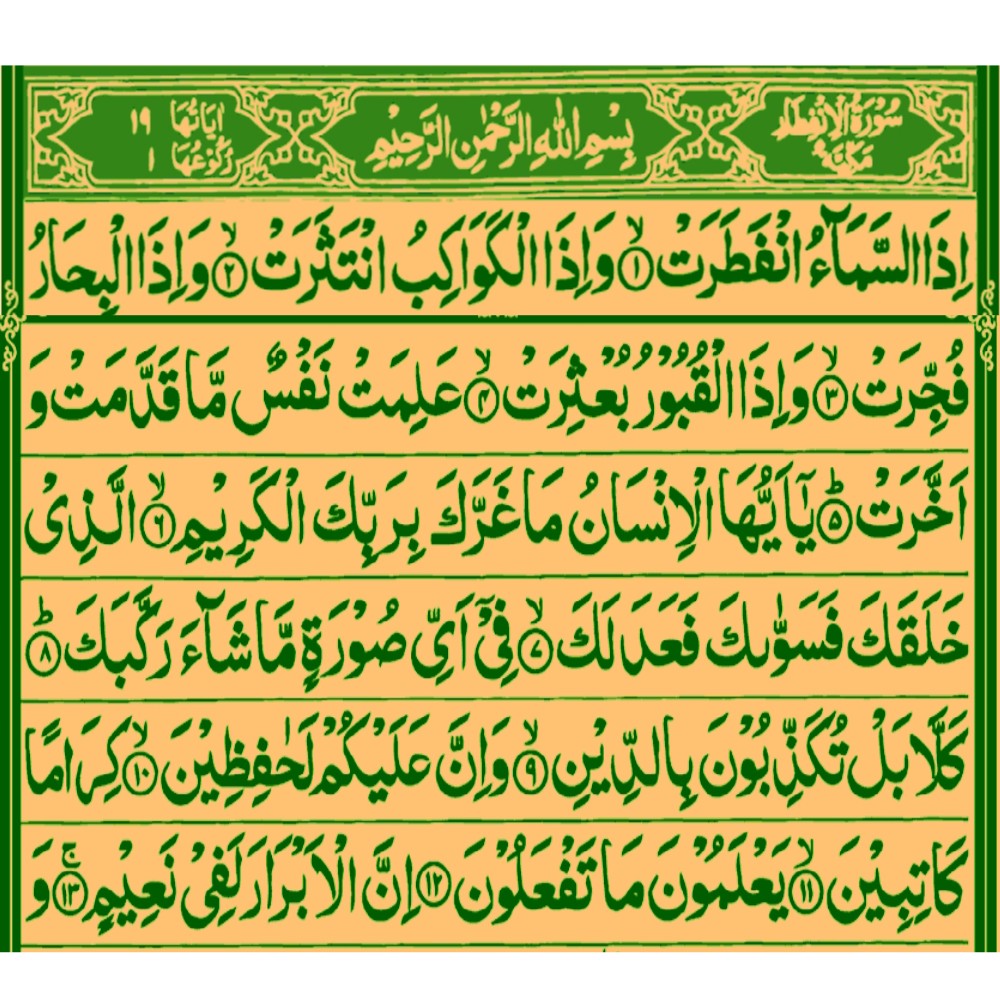 سُوْرَةُ الْاِنْفِطَارِ مَكِّيَّةٌ بِسْمِ اللّٰهِ الرَّحْمٰنِ الرَّحِيْمِ اٰيَاتُهَا ١٩ رُكُوْعُهَا ١
اِذَا السَّمَآءُ انْفَطَرَتْ ۙ﴿۱﴾ وَاِذَا الْكَوَاكِبُ انْتَثَرَتْ ۙ﴿۲﴾ وَاِذَا الْبِحَارُ
فُجِّرَتْ ۙ﴿۳﴾ وَاِذَا الْقُبُوْرُ بُعْثِرَتْ ۙ﴿۴﴾ عَلِمَتْ نَفْسٌ مَّا قَدَّمَتْ وَ
اَخَّرَتْ ؕ﴿۵﴾ يٰۤاَيُّهَا الْاِنْسَانُ مَا غَرَّكَ بِرَبِّكَ الْكَرِيْمِ ۙ﴿۶﴾ الَّذِىْ
خَلَقَكَ فَسَوّٰىكَ فَعَدَلَكَ ۙ﴿۷﴾ فِىْۤ اَىِّ صُوْرَةٍ مَّا شَآءَ رَكَّبَكَ ؕ﴿۸﴾
كَلَّا بَلْ تُكَذِّبُوْنَ بِالدِّيْنِ ۙ﴿۹﴾ وَاِنَّ عَلَيْكُمْ لَحٰفِظِيْنَ ۙ﴿۱۰﴾ كِرَامًا
كَاتِبِيْنَ ۙ﴿۱۱﴾ يَعْلَمُوْنَ مَا تَفْعَلُوْنَ ﴿۱۲﴾ اِنَّ الْاَبْرَارَ لَفِىْ نَعِيْمٍ ۚ﴿۱۳﴾ وَ